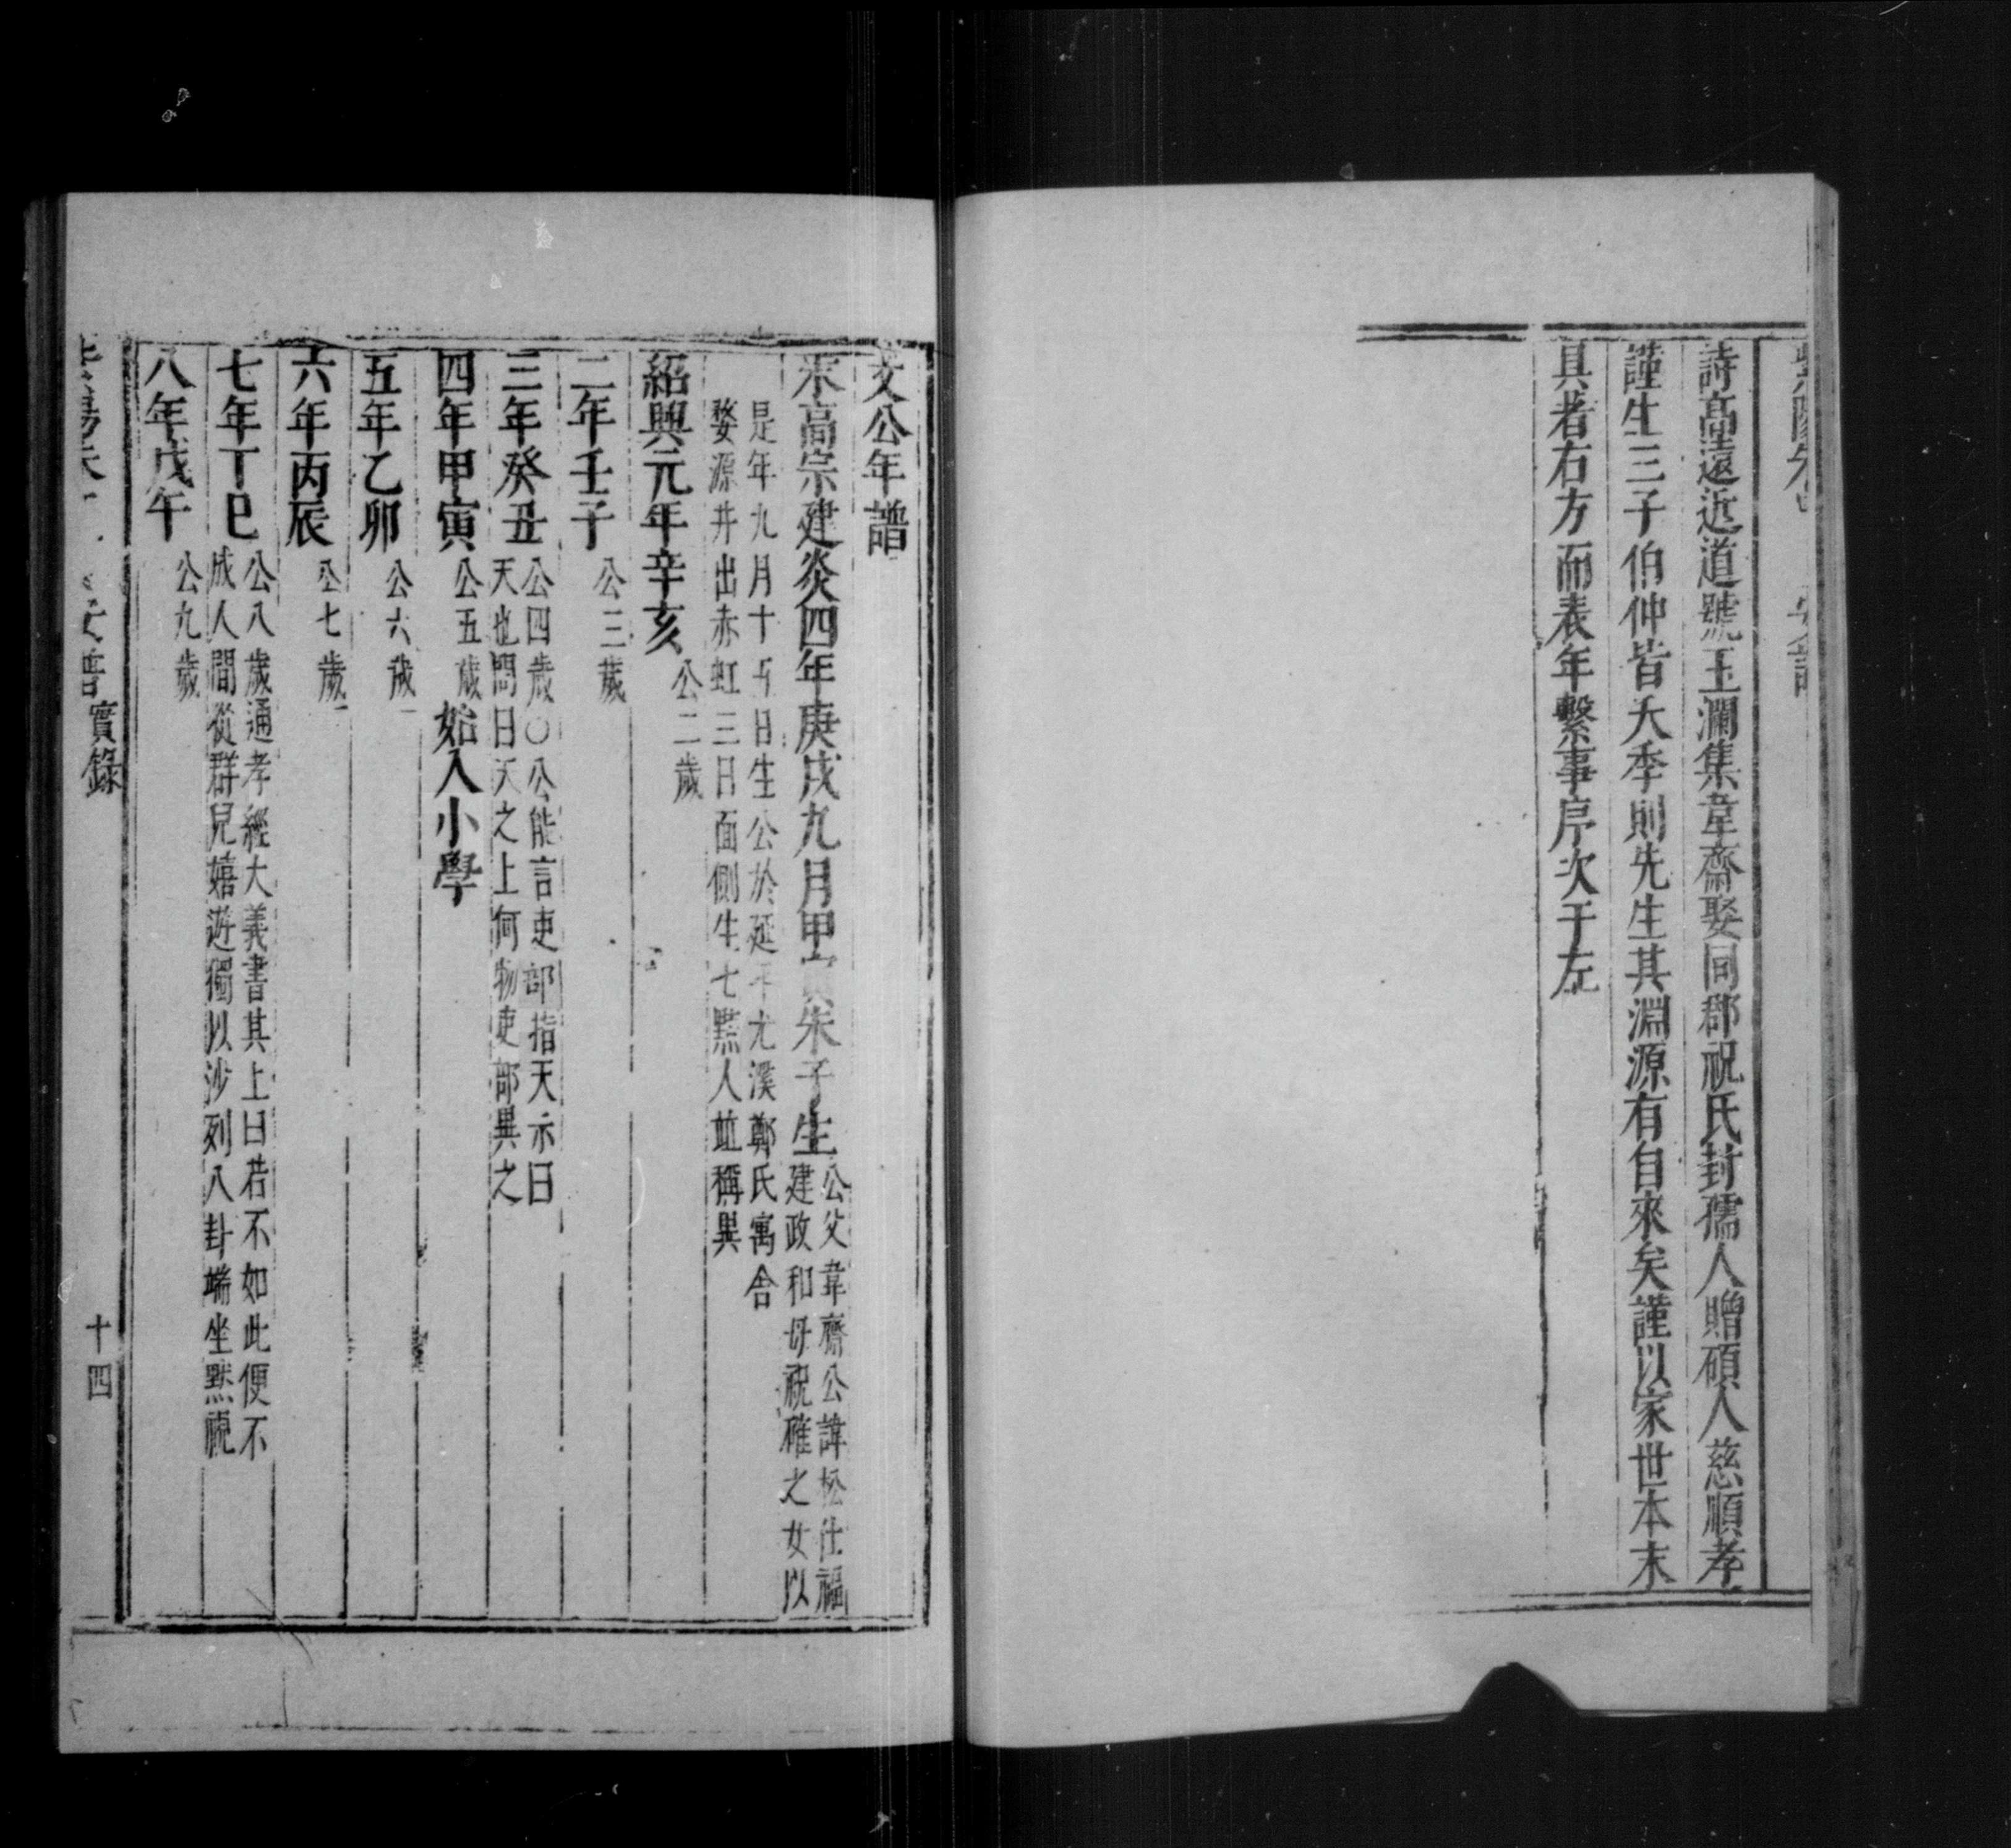 詩高遠近道號玉瀾集韋齋娶同郡祝氏封孺人贈碩人慈順孝
謹生三子伯仲皆夭季則先生其淵源有自來矣謹以家世本末
具者右方而表年繫事序次于左
文公年譜
宋高宗建炎四年庚戌九月甲寅朱子生公父韋齋公諱松仕福
建政和母祝確之女以
是年九月十五日生公於延平尤溪鄭氏寓舍
婺源井出赤虹三日面側生七黑人並稱異
紹興元年辛亥公二歲
二年壬子公三歲
三年癸丑公四歲○公能言吏部指天示曰
天也問曰天之上何物吏部異之
四年甲寅公五歲始入小學
五年乙卯公六歲
六年丙辰公七歲
七年丁巳公八歲通孝經大義書其上曰若不如此便不
成人間從群兒嬉遊獨以沙列八卦端坐默視
八年戊午公九歲
實錄
十四